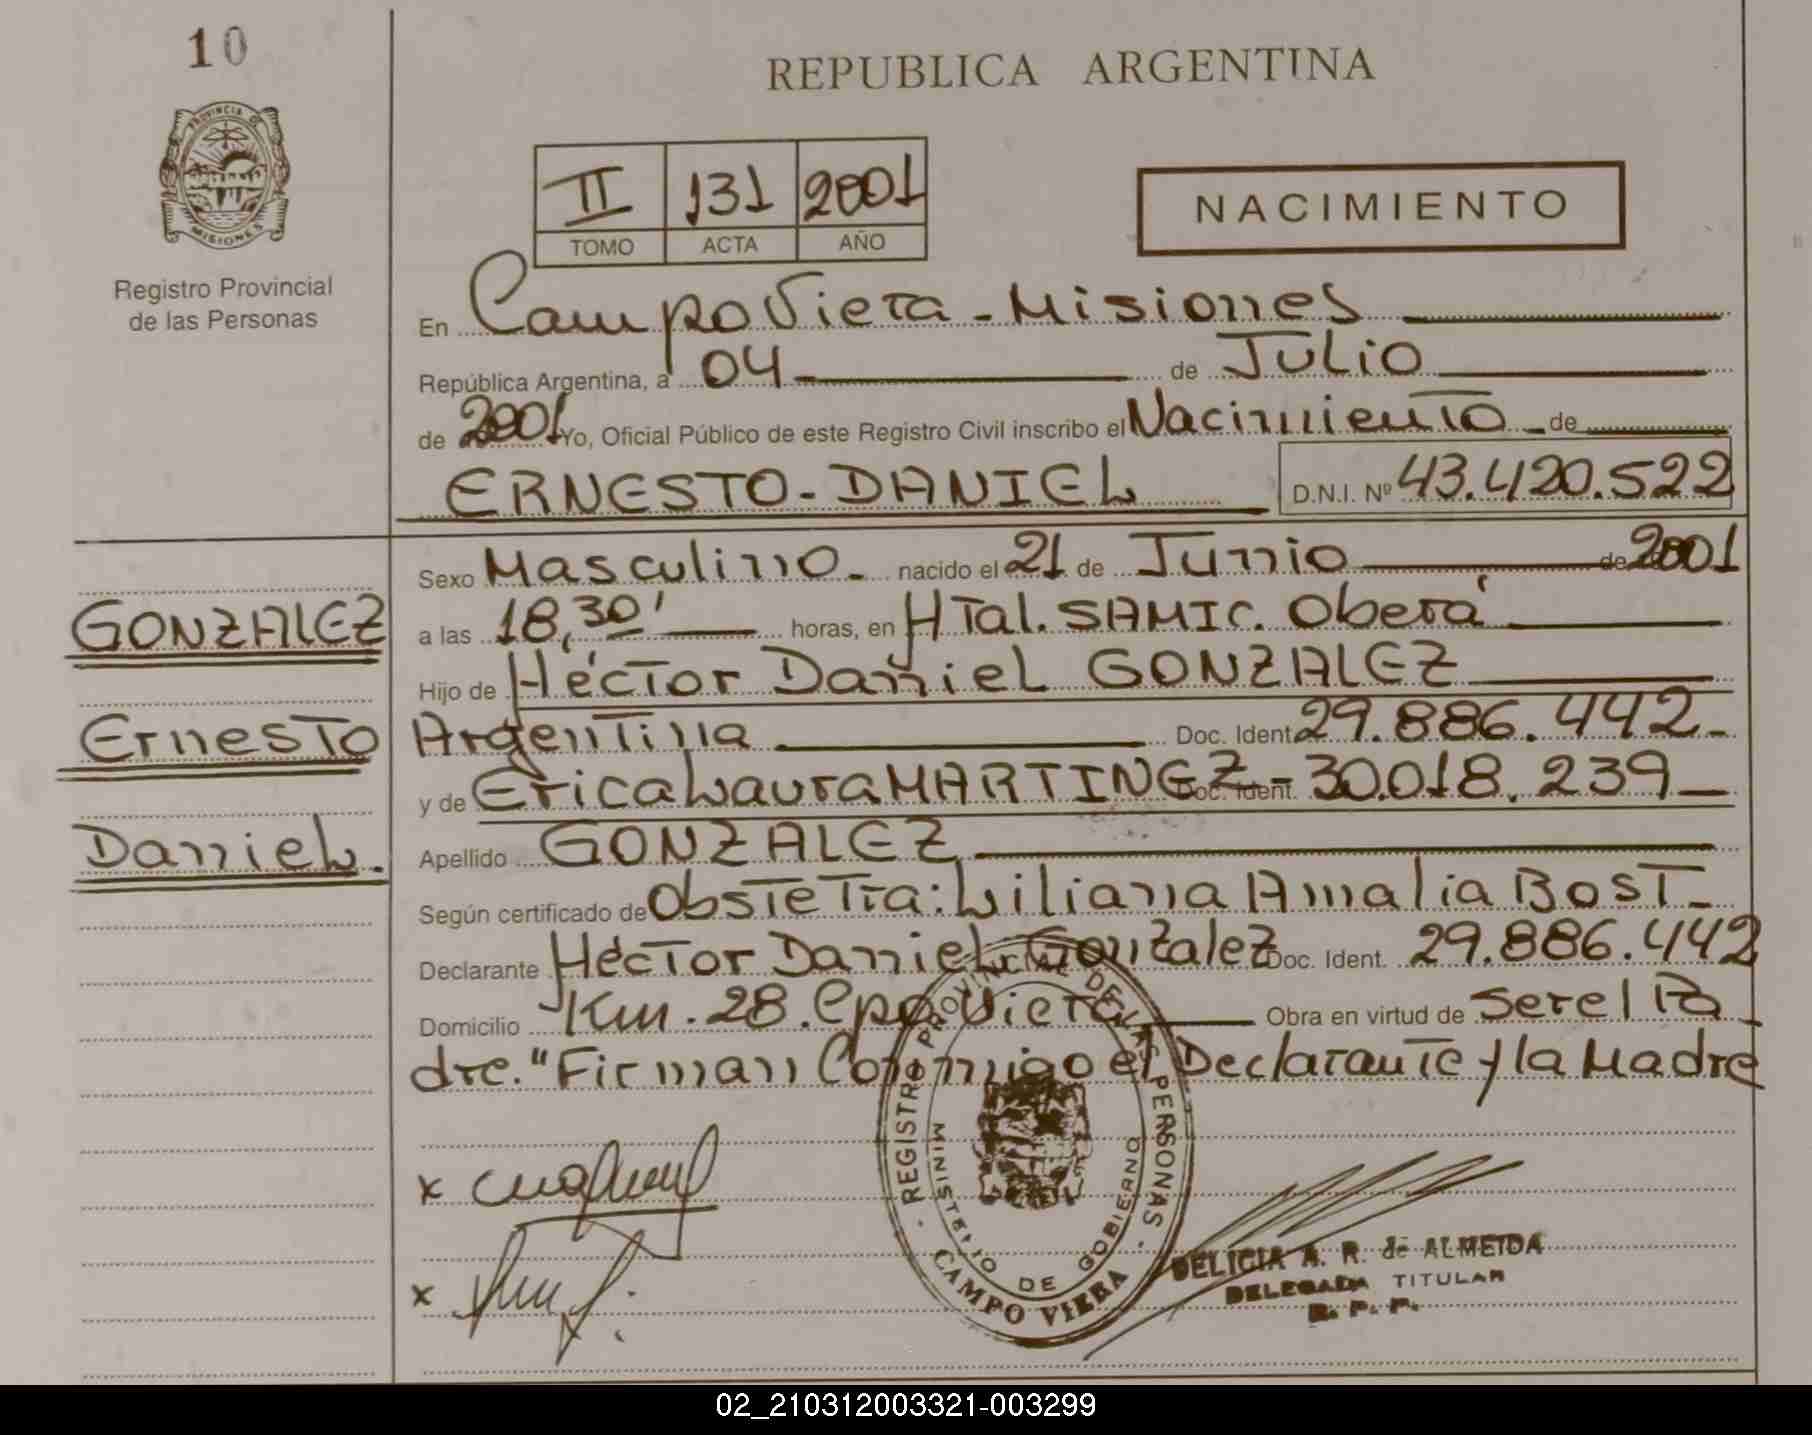 10
REPUBLICA ARGENTINA
PROVINCIA DE
MISIONES
Registro Provincial
de las Personas
II 131 2001
TOMO ACTA AÑO
NACIMIENTO
En Campo Viera - Misiones
República Argentina, a 04 de Julio
de 2001 Yo, Oficial Público de este Registro Civil inscribo el Nacimiento de
ERNESTO - DANIEL D.N.I. Nº 43.420.522
Sexo Masculino. nacido el 21 de Junio de 2001
a las 18,30' horas, en HTal. SAMIC. Oberá
Hijo de Héctor Daniel GONZALEZ
Argentina Doc. Ident. 29.886.442-
y de Erica Laura MARTINEZ - Doc. Ident. 30.018.239
Apellido GONZALEZ
Según certificado de Obstetra: Liliana Amalia BOST-
Declarante Héctor Daniel Gonzalez Doc. Ident. 29.886.442
Domicilio Km. 28. Cpo Viera Obra en virtud de ser el Pa
dre." Firman Conmigo el Declarante y la Madre
GONZALEZ
Ernesto
Daniel.
x
x
REGISTRO PROVINCIAL DE LAS PERSONAS
MINISTERIO DE GOBIERNO
CAMPO VIERA
DELICIA A. R. de ALMEIDA
DELEGADA TITULAR
R. P. P.
02_210312003321-003299